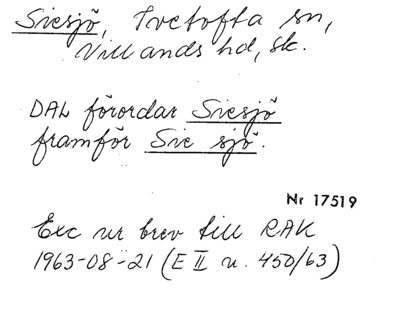 Siesjö, Ivetofta sn,
Villands hd, Sk.
DAL förordar Siesjö
framför Sie sjö.
Nr 17519
Exc ur brev till RAK
1963-08-21 (E II u. 450/63)